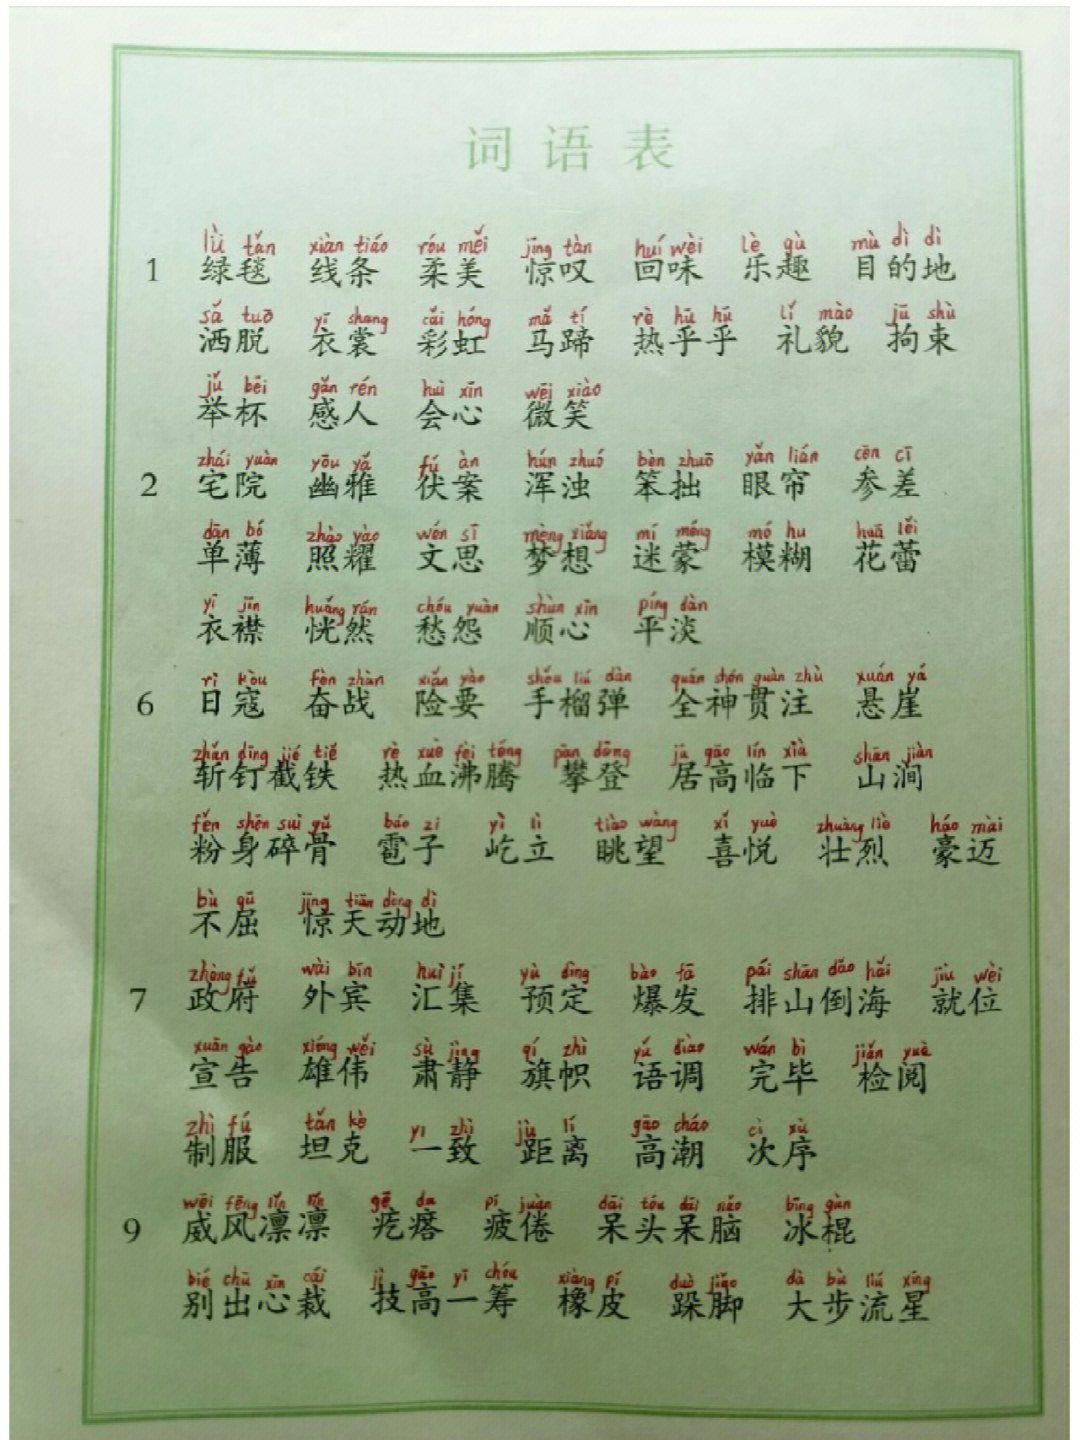 词语表
lǜ tǎn xiàn tiáo róu měi jīng tàn huí wèi lè qù mù dì dì
1 绿毯 线条 柔美 惊叹 回味 乐趣 目的地
sǎ tuō yī shang cǎi hóng mǎ tí rè hū hū lǐ mào jū shù
洒脱 衣裳 彩虹 马蹄 热乎乎 礼貌 拘束
jǔ bēi gǎn rén huì xīn wēi xiào
举杯 感人 会心 微笑
zhái yuàn yōu yǎ fú àn hún zhuó bèn zhuō yǎn lián cēn cī
2 宅院 幽雅 伏案 浑浊 笨拙 眼帘 参差
dān bó zhào yào wén sī mèng xiǎng mí méng mó hu huā lěi
单薄 照耀 文思 梦想 迷蒙 模糊 花蕾
yī jīn huǎng rán chóu yuàn shùn xīn píng dàn
衣襟 恍然 愁怨 顺心 平淡
rì kòu fèn zhàn xiǎn yào shǒu liú dàn quán shén guàn zhù xuán yá
6 日寇 奋战 险要 手榴弹 全神贯注 悬崖
zhǎn dīng jié tiě rè xuè fèi téng pān dēng jū gāo lín xià shān jiàn
斩钉截铁 热血沸腾 攀登 居高临下 山涧
fěn shēn suì gǔ báo zi yì lì tiào wàng xǐ yuè zhuàng liè háo mài
粉身碎骨 雹子 屹立 眺望 喜悦 壮烈 豪迈
bù qū jīng tiān dòng dì
不屈 惊天动地
zhèng fǔ wài bīn huì jí yù dìng bào fā pái shān dǎo hǎi jiù wèi
7 政府 外宾 汇集 预定 爆发 排山倒海 就位
xuān gào xióng wěi sù jìng qí zhì yǔ diào wán bì jiǎn yuè
宣告 雄伟 肃静 旗帜 语调 完毕 检阅
zhì fú tǎn kè yī zhì jù lí gāo cháo cì xù
制服 坦克 一致 距离 高潮 次序
wēi fēng lǐn lǐn gē da pí juàn dāi tóu dāi nǎo bīng gùn
9 威风凛凛 疙瘩 疲倦 呆头呆脑 冰棍
bié chū xīn cái jì gāo yī chóu xiàng pí duò jiǎo dà bù liú xīng
别出心裁 技高一筹 橡皮 跺脚 大步流星